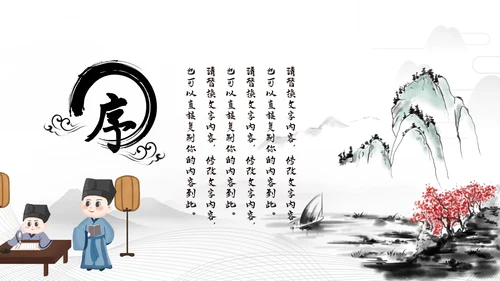 序
请替换文字内容，修改文字内容，
也可以直接复制你的内容到此。
请替换文字内容，修改文字内容，
也可以直接复制你的内容到此。
请替换文字内容，修改文字内容，
也可以直接复制你的内容到此。